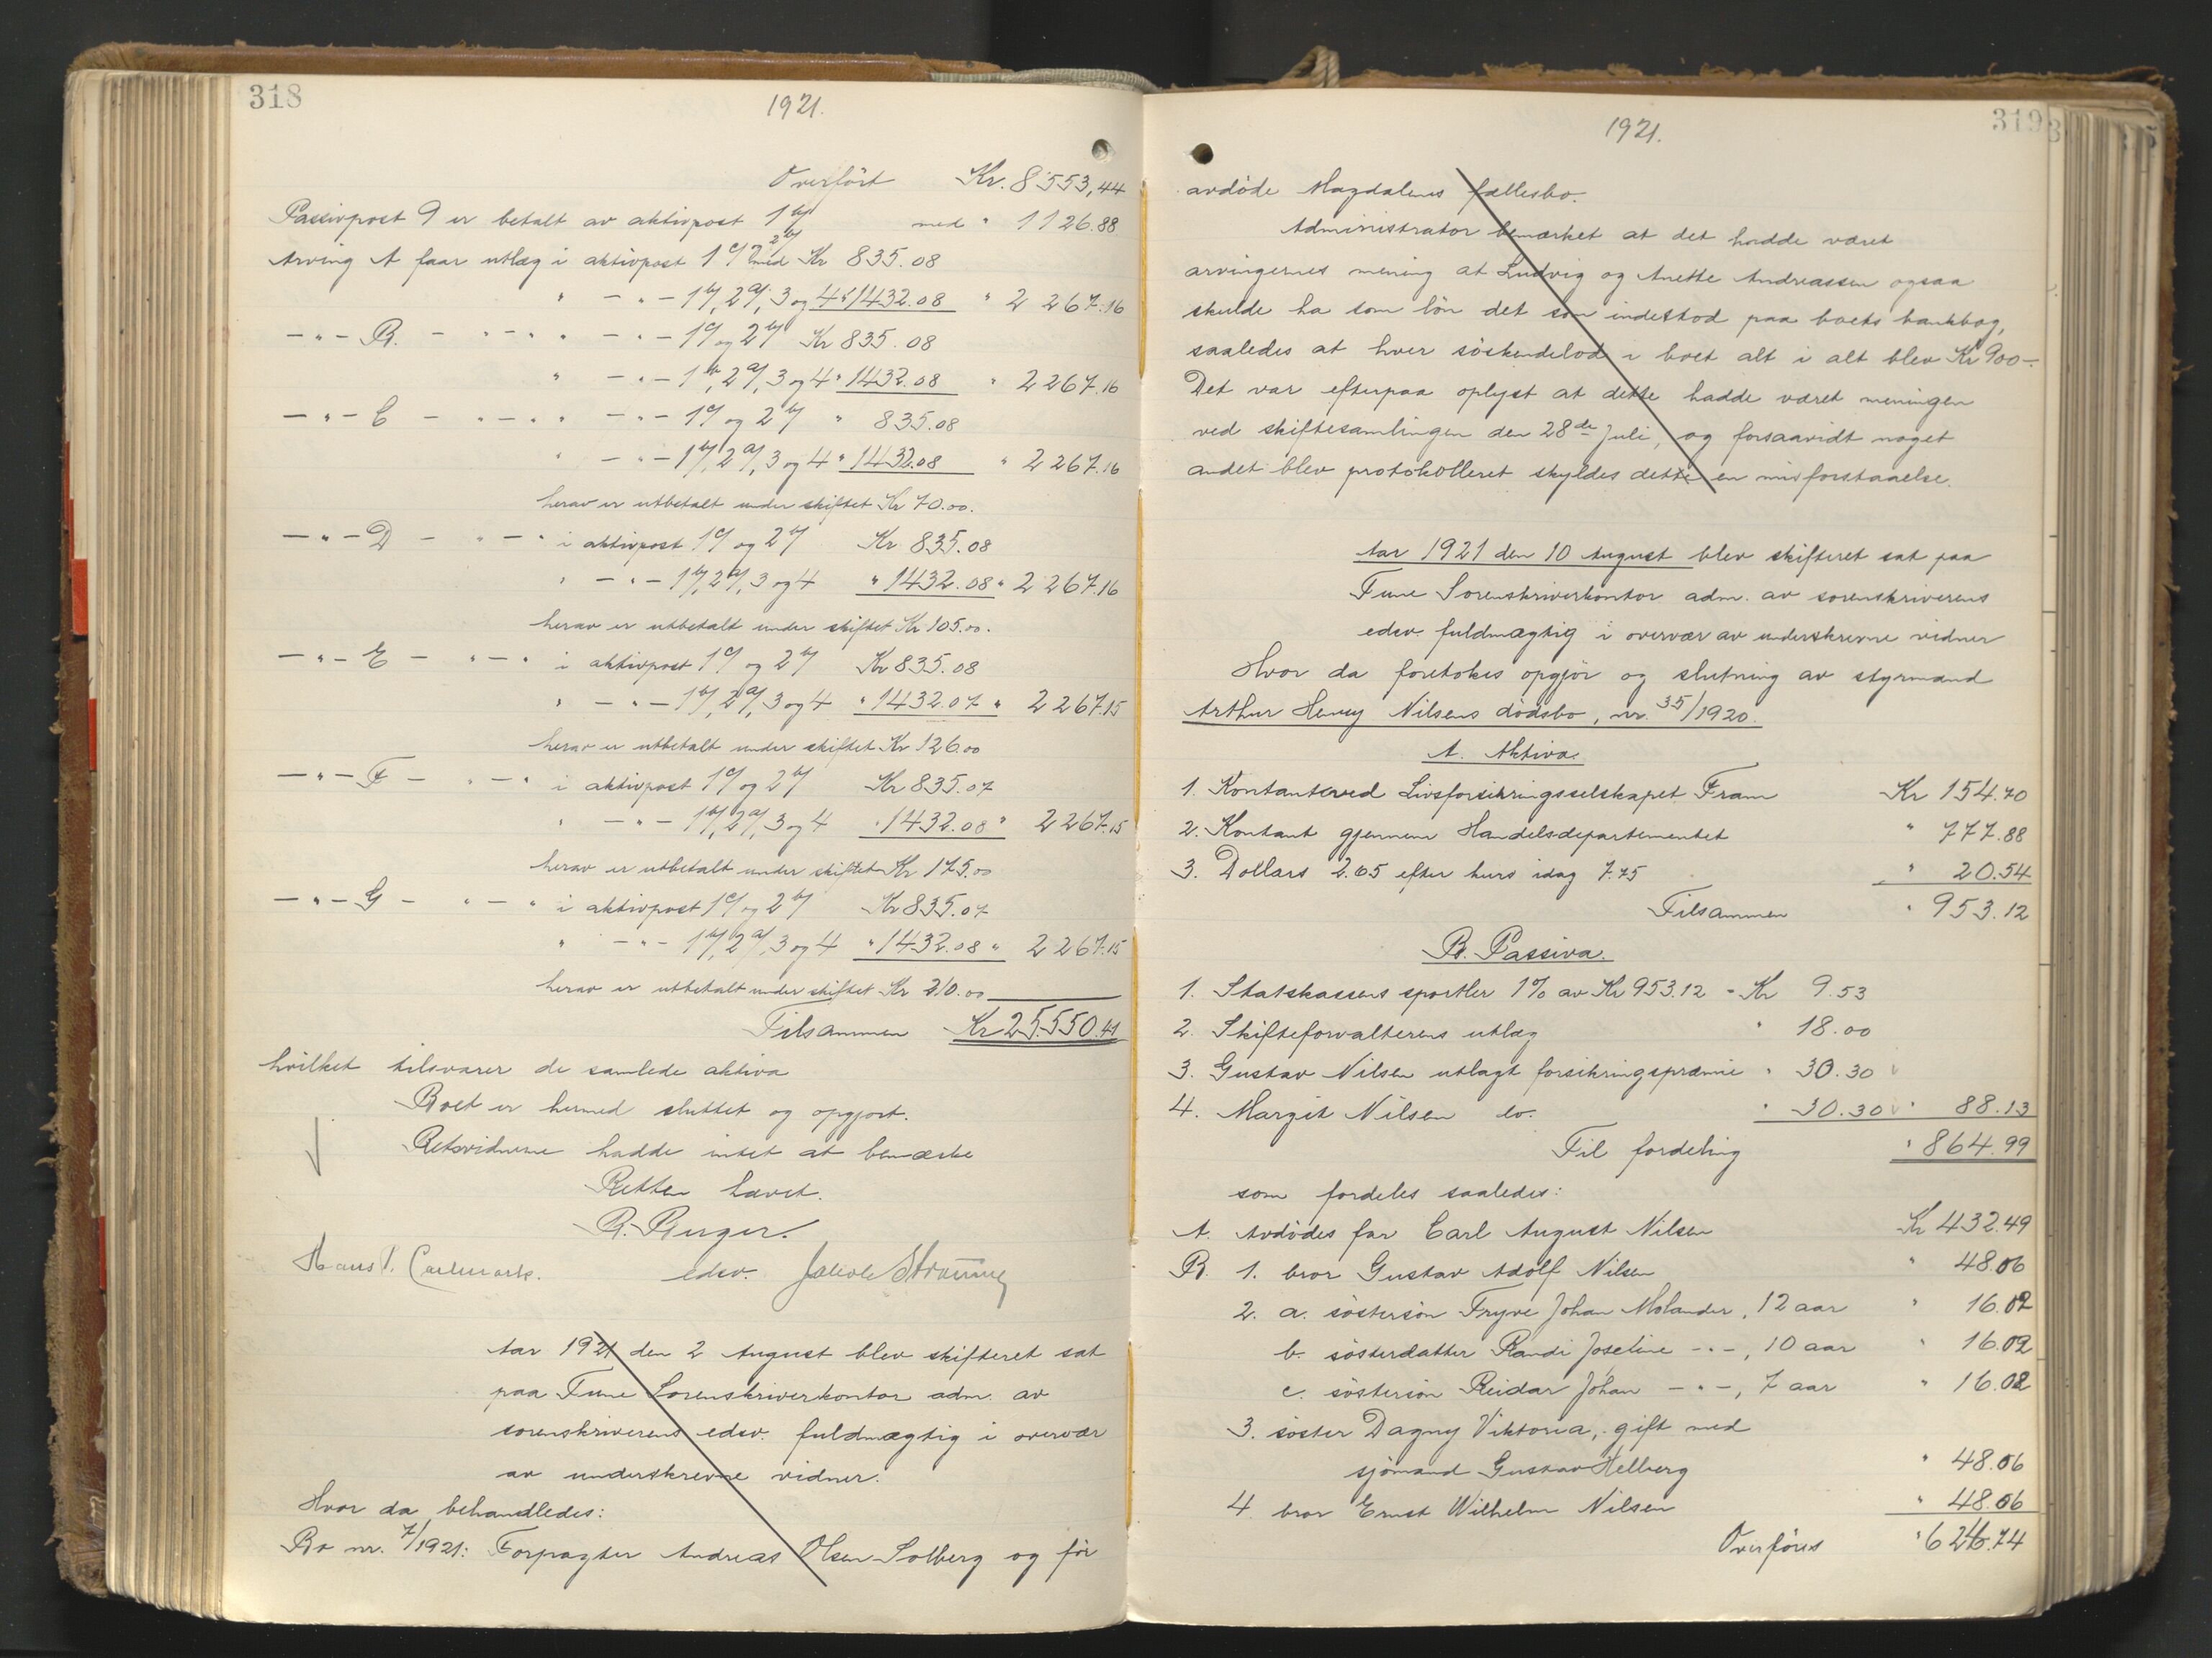 318
1921.
Overfört Kr. 8553,44
Passivpost 9 er betalt av aktivpost 1 b/ med " 1126.88
Arving A faar utlæg i aktivpost 1 c/ og 2 b/ med Kr 835.08
" - " - 1 b/, 2 a/, 3 og 4 " 1432.08 " 2267.16
- " - B. - " - " " - " - 1 c/ og 2 b/ Kr 835.08
" - " - 1 b/, 2 a/, 3 og 4 " 1432.08 " 2267.16
- " - C - " - " " - " - 1 c/ og 2 b/ " 835.08
" - " - 1 b/, 2 a/, 3 og 4 " 1432.08 " 2267.16
herav er utbetalt under skiftet Kr 70.00.
- " - D - " - " i aktivpost 1 c/ og 2 b/ Kr 835.08
" - " - 1 b/, 2 a/, 3 og 4 " 1432.08 " 2267.16
herav er utbetalt under skiftet Kr 105.00.
- " - E - " - " i aktivpost 1 c/ og 2 b/ Kr 835.08
" - " - 1 b/, 2 a/, 3 og 4 " 1432.07 " 2267.15
herav er utbetalt under skiftet Kr 126.00
- " - F - " - " i aktivpost 1 c/ og 2 b/ Kr 835.07
" - " - 1 b/, 2 a/, 3 og 4 " 1432.08 " 2267.15
herav er utbetalt under skiftet Kr 175.00
- " - G - " - " i aktivpost 1 c/ og 2 b/ Kr 835.07
" - " - 1 b/, 2 a/, 3 og 4 " 1432.08 " 2267.15
herav er utbetalt under skiftet Kr 210.00
Tilsammen Kr 25550.41
hvilket tilsvarer de samlede aktiva
Boet er hermed sluttet og opgjort.
Retsvidnerne hadde intet at bemærke
Retten hævet.
R. Berger.
edsv.
Hans Jakob
Aar 1921 den 2 August blev skifteret sat
paa Tune Sorenskriverkontor adm. av
sorenskriverens edsv. fuldmægtig i overvær
av underskrevne vidner.
Hvor da behandledes:
Bo nr. 7/1921: Forpagter Andreas Olsen Solberg og för
319
1921.
avdöde Magdalenes fællesbo.
Administrator bemærket at det hadde været
arvingernes mening at Ludvig og Anette Andreassen ogsaa
skulde ha som lön det som indestod paa boets bankbog,
saaledes at hver söskendelod i boet alt i alt blev Kr 900-.
Det var efterpaa oplyst at dette hadde været meningen
ved skiftesamlingen den 28de Juli, og forsaavidt noget
andet blev protokolleret skyldes dette en misforstaaelse.
Aar 1921 den 10 August blev skifteret sat paa
Tune Sorenskriverkontor adm. av sorenskriverens
edsv. fuldmægtig i overvær av underskrevne vidner
Hvor da foretokes opgjör og slutning av styrmand
Arthur Henry Nilsens dödsbo, nr. 35/1920.
A. Aktiva.
1. Kontant ved Livsforsikringsselskapet Fram Kr 154.70
2. Kontant gjennem Handelsdepartementet " 777.88
3. Dollars 2.65 efter kurs idag 7.75 " 20.54
Tilsammen " 953.12
B. Passiva.
1. Statskassens sportler 1% av Kr 953.12 - Kr 9.53
2. Skifteforvalterens utlæg " 18.00
3. Gustav Nilsen utlagt forsikringspræmie " 30.30
4. Margit Nilsen do. " 30.30 " 88.13
Til fordeling " 864.99
som fordeles saaledes:
A. Avdödes far Carl August Nilsen Kr 432.49
B. 1. bror Gustav Adolf Nilsen " 48.06
2. a. söstersön Tryve Johan Molander, 12 aar " 16.02
b. sösterdatter Randi Joseline - " -, 10 aar " 16.02
c. söstersön Reidar Johan - " -, 7 aar " 16.02
3. söster Dagny Viktoria, gift med
sjömand Gustav Helberg " 48.06
4. bror Ernst Wilhelm Nilsen " 48.06
Overföres